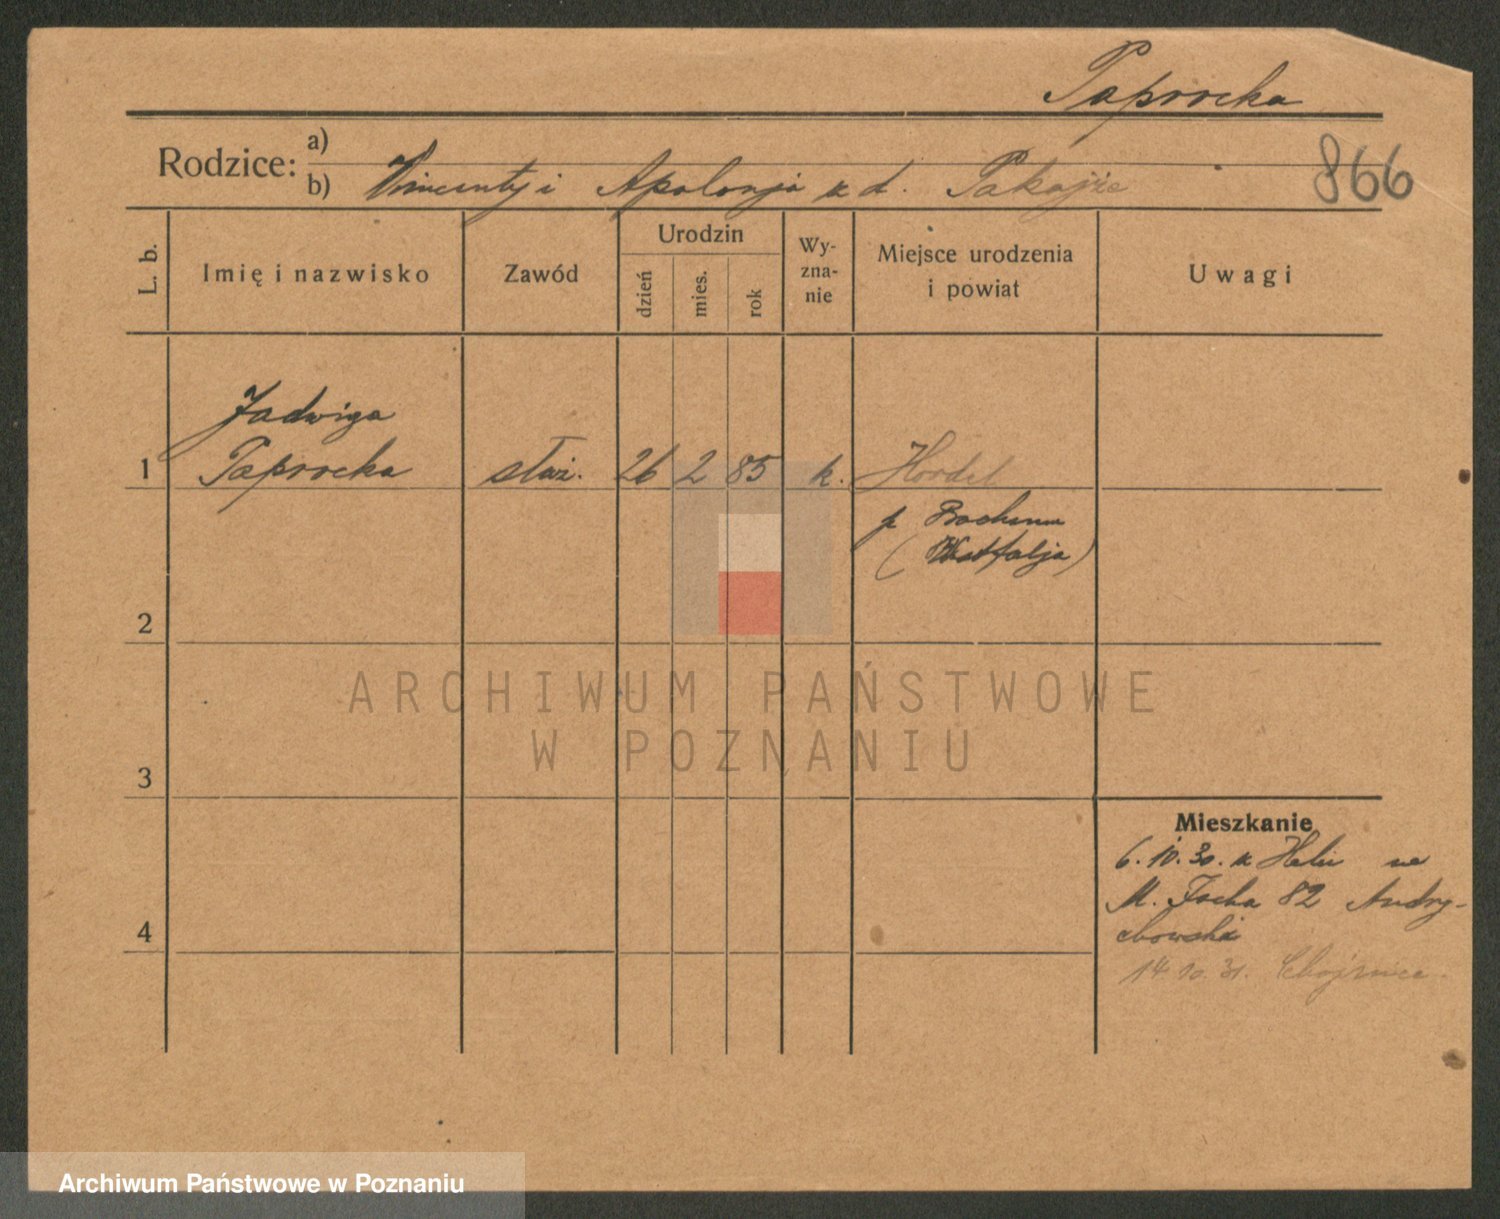 Paprocka
866
Rodzice:
a)
b) Wincenty i Apolonja u d. Pakojże
L. b.
Imię i nazwisko
Zawód
Urodzin
dzień
mies.
rok
Wy-
zna-
nie
Miejsce urodzenia
i powiat
Uwagi
Jadwiga
1 Paprocka służ. 26 2 85 k. Hordel
p Bochum
(Westfalja)
2
3
4
Mieszkanie
6.10.30. z Helu na
M. Focha 82 Andry-
chowski
14.10.31. Chojnice.
ARCHIWUM PAŃSTWOWE
W POZNANIU
Archiwum Państwowe w Poznaniu